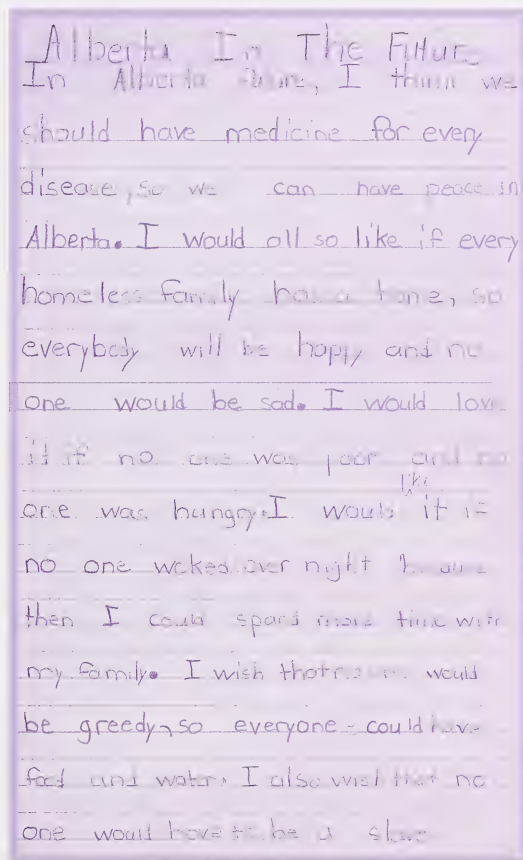 Alberta In The Futur
In Alberta future, I think we
should have medicine for every
disease, so we can have peace in
Alberta. I would all so like if every
homeless family has a home, so
everybody will be happy and no
one would be sad. I would love
it if no one was poor and no
one was hungry. I would like it if
no one woked over night because
then I could spand more time with
my family. I wish that would
be greedy, so everyone could have
food and water. I also wish that no
one would have to be a slave